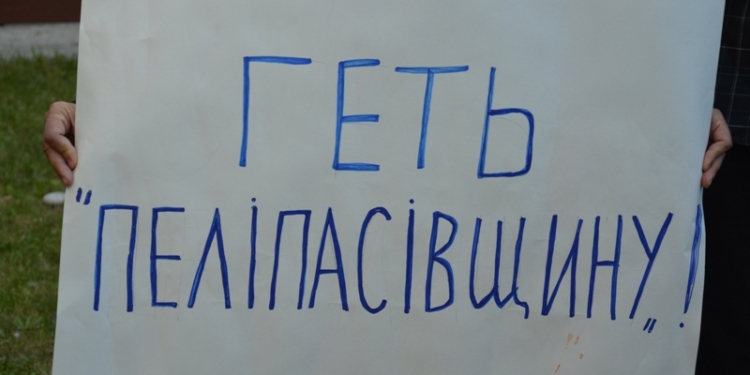 ГЕТЬ
"ПЕЛІПАСІВЩИНУ„!